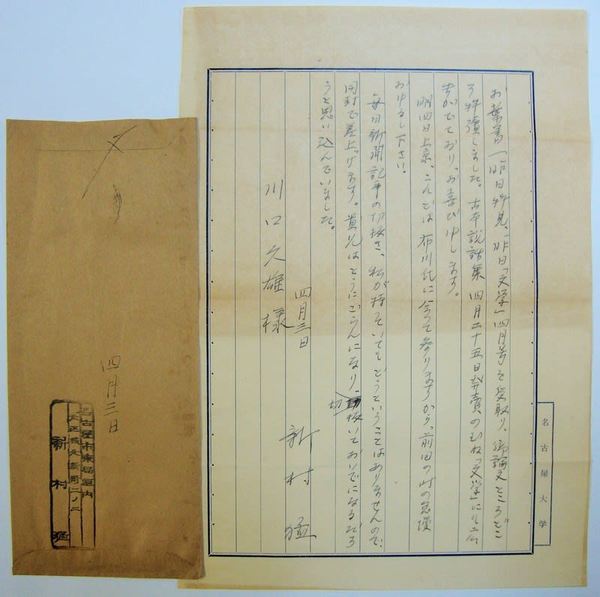 お葉書「昨日拝見、昨日「文学」四月号を受取り、御論文ところどころ拝読しました。古本説話集 四月二十五日発売のむね「文学」に
すがでており、お喜び申します。
明四日上京、こんどは 市川氏に会って参りますから、前田の
おゆるし下さい。
毎日新聞記事の切抜き、私が持っていてもどうということはありませんので、
同封で差上げます。貴兄はとうにごらんになり、切抜いておいでになるだろ
うと思い込んでいました。
四月三日
新村猛
川口久雄様
名古屋大学
四月三日
名古屋市東局区内
新村猛